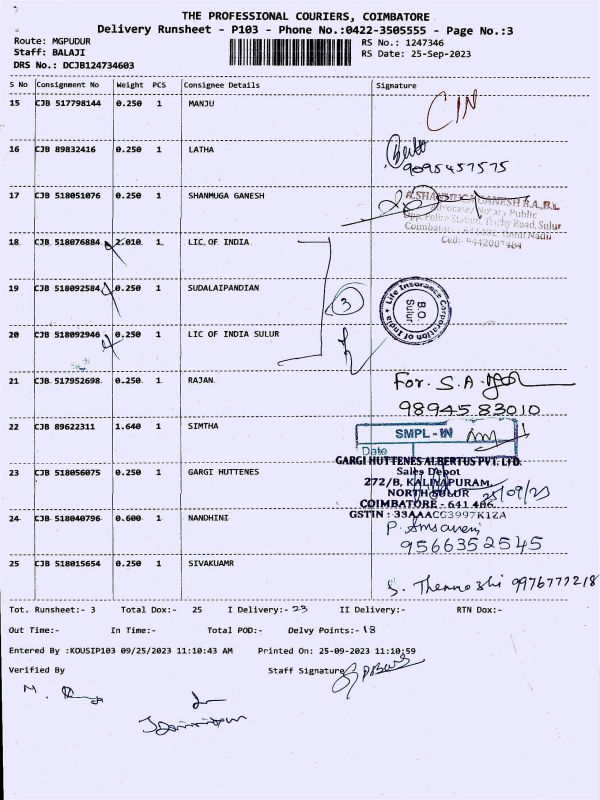 THE PROFESSIONAL COURIERS, COIMBATORE
Delivery Runsheet - P103 - Phone No.:0422-3505555 - Page No.:3
Route: MGPUDUR RS No.: 1247346
Staff: BALAJI RS Date: 25-Sep-2023
DRS No.: DCJB124734603
S No Consignment No Weight PCS Consignee Details Signature
15 CJB 517798144 0.250 1 MANJU CIN
16 CJB 89832416 0.250 1 LATHA
9095457575
17 CJB 518051076 0.250 1 SHANMUGA GANESH A.SHANMUGA GANESH B.A.,B.L.
Advocate / Notary Public
Opp. Police Station, Trichy Road, Sulur
Coimbatore - 641402. Tamil Nadu
Cell: 9442007484
18 CJB 518076884 2.010 1 LIC OF INDIA
19 CJB 518092584 0.250 1 SUDALAIPANDIAN 3
Life Insurance Corporation of India
B.O.
Sulur
20 CJB 518092946 0.250 1 LIC OF INDIA SULUR
21 CJB 517952698 0.250 1 RAJAN For. S.A.
98945 83010
22 CJB 89622311 1.640 1 SIMTHA SMPL-IN
Date
23 CJB 518056075 0.250 1 GARGI HUTTENES GARGI HUTTENES ALBERTUS PVT. LTD.
Sales Depot
272/B, KALIYAPURAM,
NORTH SULUR 25/09/23
COIMBATORE - 641 406.
GSTIN : 33AAACG3997K1ZA
24 CJB 518040796 0.600 1 NANDHINI P.
9566352545
25 CJB 518015654 0.250 1 SIVAKUAMR S. 9976777218
Tot. Runsheet:- 3 Total Dox:- 25 I Delivery:- 23 II Delivery:- RTN Dox:-
Out Time:- In Time:- Total POD:- Delvy Points:- 18
Entered By :KOUSIP103 09/25/2023 11:10:43 AM Printed On: 25-09-2023 11:10:59
Verified By Staff Signature